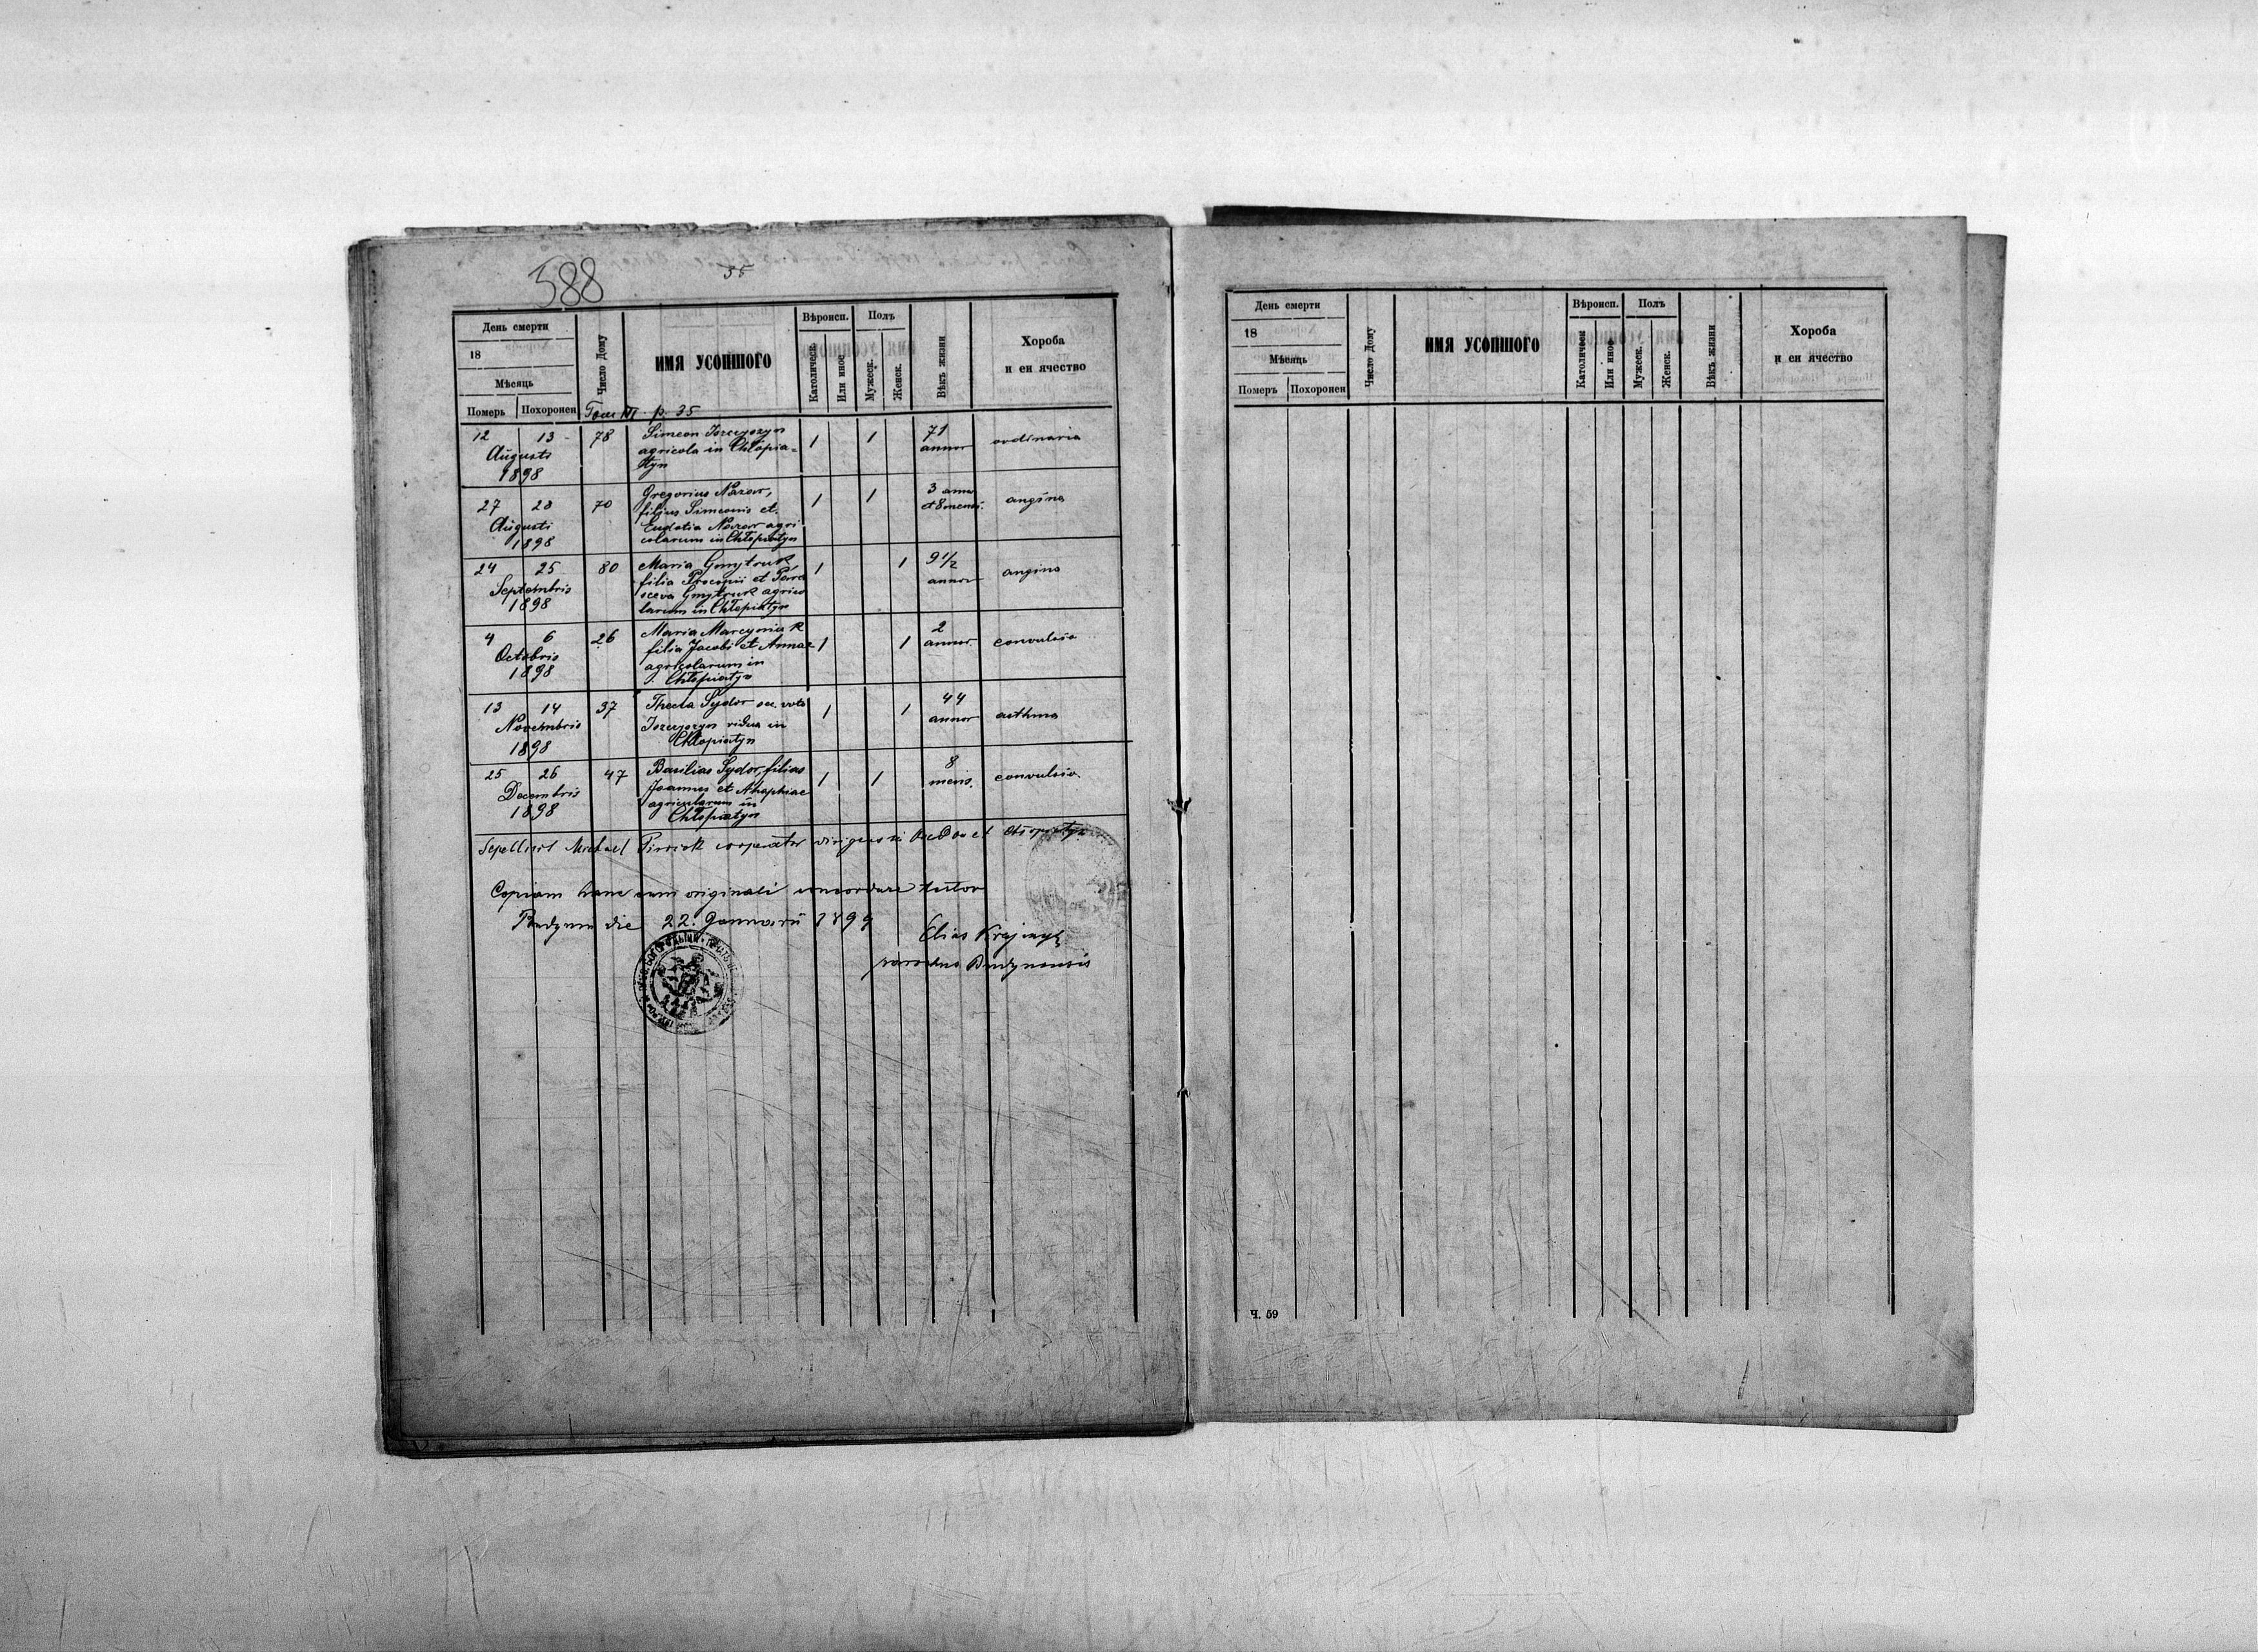 588
35
День смерти
18
Мѣсяць
Померъ Похоронен
Число Дому
ИМЯ УСОПШОГО
Вѣроисп.
Католическ.
Или иное
Полъ
Мужеск.
Женск.
Вѣкъ жизни
Хороба
и еи ячество
Tom III p. 35
12 13 78 Simeon 1 1 71 ordinaria
Augusti agricola in Chłopia= annor
1898 tyn
27 28 70 Gregorius Nazar, 1 1 3 annor angina
Augusti filius Simeonis et et 8 mens.
1898 Eudotia Nazar agri
colarum in Chłopiatyn
24 25 80 Maria Gmytruk 1 1 9 1/2 angina
Septembris filia Procopii et Para annor
1898 sceva Gmytruk agrico
larum in Chłopiatyn
4 6 26 Maria Marcyniak 1 1 2 convulsio
Octobris filia Jacobi et Annae annor
1898 agricolarum in
Chłopiatyn
13 14 37 Thecla Sydor sec. voto 1 1 44 asthma
Novembris vidua in annor
1898 Chłopiatyn
25 26 47 Basilius Sydor, filius 1 1 8 convulsio
Decembris Joannes et Ahaphiae mens.
1898 agricolarum in
Chłopiatyn
Sepelivit Michael cooperator
Copiam hanc cum originali concordare testor
Budynin die 22 Januarii 1899
Elias
parochus Budynensis
День смерти
18
Мѣсяць
Померъ Похоронен
Число Дому
ИМЯ УСОПШОГО
Вѣроисп.
Католическ
Или иное
Полъ
Мужеск.
Женск.
Вѣкъ жизни
Хороба
и еи ячество
Ч. 59